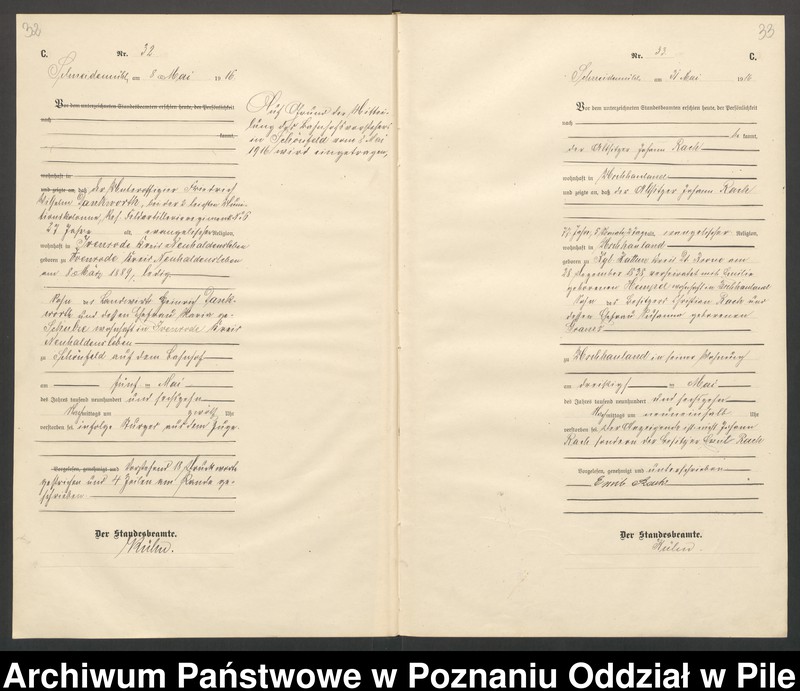 32
C. Nr. 32
Schneidemühl, am 8. Mai 1916
Vor dem unterzeichneten Standesbeamten erschien heute, der Persönlichkeit
nach
kannt,
Auf Grund der Mittei-
lung des Bahnhofsvorstehers
in Schönfeld vom 8. Mai
1916 wird eingetragen,
wohnhaft in
und zeigte an, daß der Unteroffizier Friedrich
Wilhelm Dankworth, bei der 2. leichten Muni-
tionskolonne, Res. Feldartillerieregiment N. 5
27 Jahre alt, evangelischer Religion,
wohnhaft in Ivenrode Kreis Neuhaldensleben
geboren zu Ivenrode Kreis Neuhaldensleben
am 8. März 1889, ledig
Sohn des Landwirts Heinrich Dank-
worth und dessen Ehefrau Maria ge-
wohnhaft in Ivenrode Kreis
Neuhaldensleben
zu Schönfeld auf dem Bahnhof
am fünf ten Mai
des Jahres tausend neunhundert und sechzehn
Nachmittags um zwölf Uhr
verstorben sei infolge aus dem Zuge.
Vorgelesen, genehmigt und Vorstehend 18 Druckworte
gestrichen und 4 Zeilen am Rande ge-
schrieben
Der Standesbeamte.
33
Nr. 33 C.
Schneidemühl, am 31. Mai 1916
Vor dem unterzeichneten Standesbeamten erschien heute, der Persönlichkeit
nach
be kannt,
der Altsitzer Johann Rach
wohnhaft in
und zeigte an, daß der Altsitzer Johann Rach
77 Jahre, 5 Monate, 2 Tage alt, evangelischer Religion,
wohnhaft in
geboren zu
28. Dezember 1838, verheiratet mit Emilie
geborenen wohnhaft in
Sohn des Besitzers Christian Rach und
dessen Ehefrau Susanna geborenen
zu in seiner Wohnung
am dreißigs ten Mai
des Jahres tausend neunhundert und sechzehn
Nachmittags um neuneinhalb Uhr
verstorben sei. Der Anzeigende ist nicht Johann
Rach sondern der Besitzer Emil Rach
Vorgelesen, genehmigt und unterschrieben
Emil Rach
Der Standesbeamte.
Archiwum Państwowe w Poznaniu Oddział w Pile